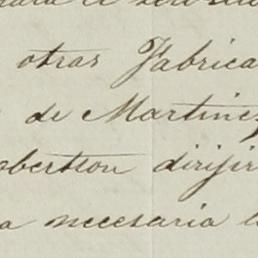 otras Fabrica
de Martinez
obertson dirijir
a necesaria